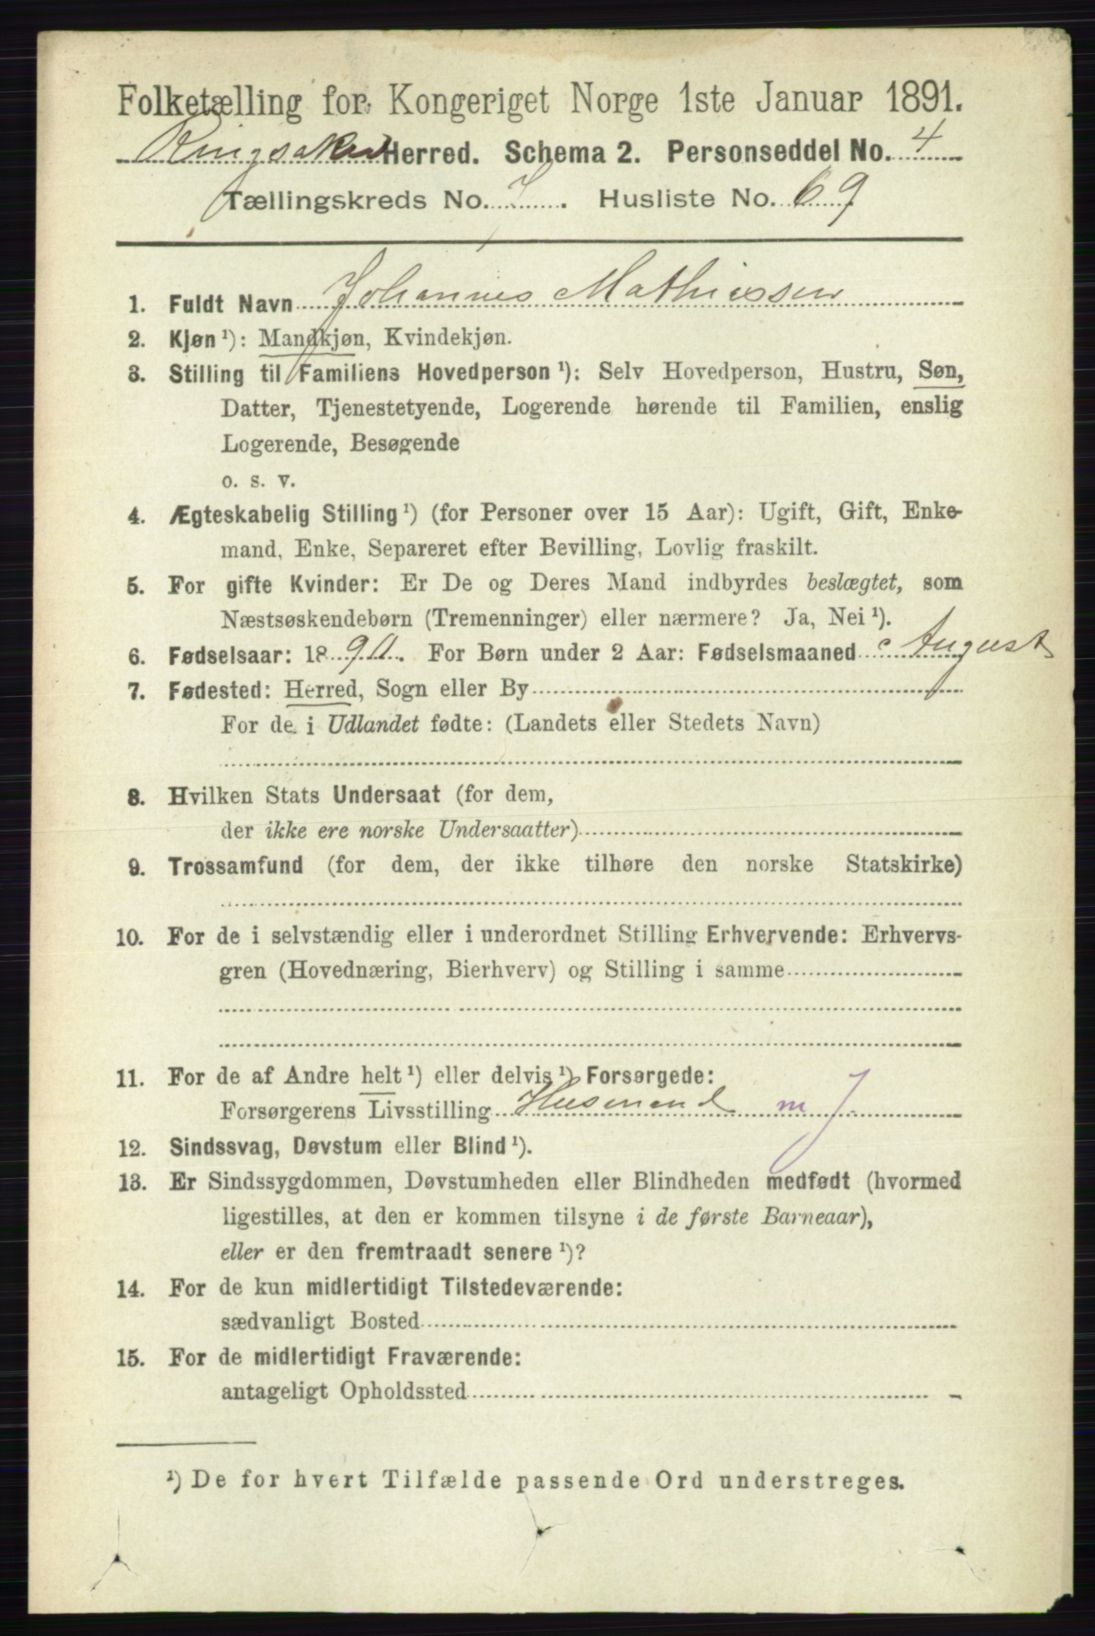 Folketælling for Kongeriget Norge 1ste Januar 1891.
Ringsaker Herred. Schema 2. Personseddel No. 4
Tællingskreds No. 7. Husliste No. 69
1. Fuldt Navn Johannes Mathiessen
2. Kjøn ¹): Mandkjøn, Kvindekjøn.
3. Stilling til Familiens Hovedperson ¹): Selv Hovedperson, Hustru, Søn,
Datter, Tjenestetyende, Logerende hørende til Familien, enslig
Logerende, Besøgende
o. s. v.
4. Ægteskabelig Stilling ¹) (for Personer over 15 Aar): Ugift, Gift, Enke-
mand, Enke, Separeret efter Bevilling, Lovlig fraskilt.
5. For gifte Kvinder: Er De og Deres Mand indbyrdes beslægtet, som
Næstsøskendebørn (Tremenninger) eller nærmere? Ja, Nei ¹).
6. Fødselsaar: 1890. For Børn under 2 Aar: Fødselsmaaned August
7. Fødested: Herred, Sogn eller By
For de i Udlandet fødte: (Landets eller Stedets Navn)
8. Hvilken Stats Undersaat (for dem,
der ikke ere norske Undersaatter)
9. Trossamfund (for dem, der ikke tilhøre den norske Statskirke)
10. For de i selvstændig eller i underordnet Stilling Erhvervende: Erhvervs-
gren (Hovednæring, Bierhverv) og Stilling i samme
11. For de af Andre helt ¹) eller delvis ¹) Forsørgede:
Forsørgerens Livsstilling Husmand m J.
12. Sindssvag, Døvstum eller Blind ¹).
13. Er Sindssygdommen, Døvstumheden eller Blindheden medfødt (hvormed
ligestilles, at den er kommen tilsyne i de første Barneaar),
eller er den fremtraadt senere ¹)?
14. For de kun midlertidigt Tilstedeværende:
sædvanligt Bosted
15. For de midlertidigt Fraværende:
antageligt Opholdssted
¹) De for hvert Tilfælde passende Ord understreges.